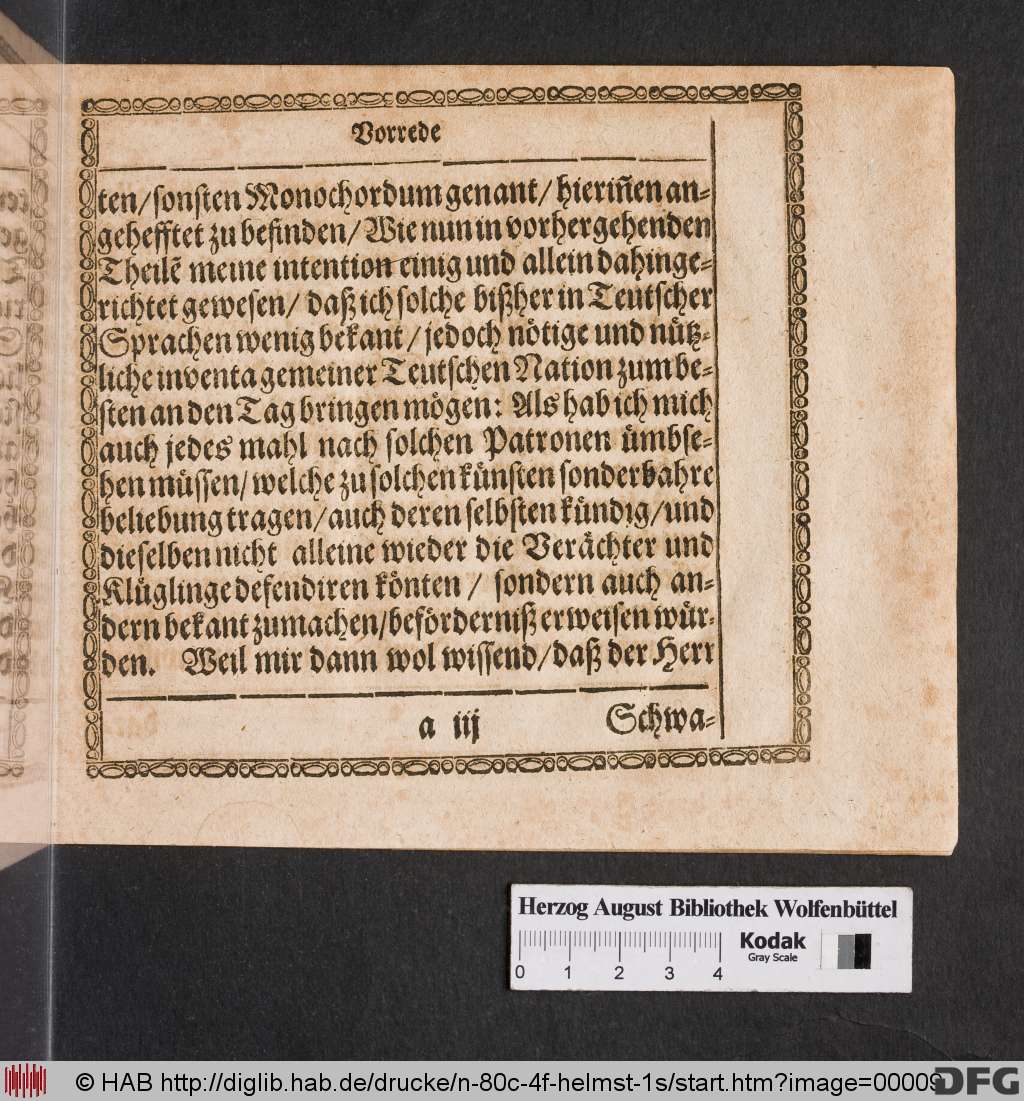 Vorrede
ten/ sonsten Monochordum genant/ hieriñen an-
gehefftet zu befinden/ Wie nun in vorhergehenden
Theilẽ meine intention einig und allein dahin ge-
richtet gewesen/ daß ich solche bißher in Teutscher
Sprachen wenig bekant/ jedoch nötige und nütz-
liche inventa gemeiner Teutschen Nation zum be-
sten an den Tag bringen mögen: Als hab ich mich
auch jedes mahl nach solchen Patronen ümbse-
hen müssen/ welche zu solchen künsten sonderbahre
beliebung tragen/ auch deren selbsten kündig/ und
dieselben nicht alleine wieder die Verächter und
Klüglinge defendiren könten / sondern auch an-
dern bekant zumachen/ beförderniß erweisen wür-
den. Weil mir dann wol wissend/ daß der Herr
a iij Schwa-
Herzog August Bibliothek Wolfenbüttel
Kodak
Gray Scale
0 1 2 3 4
© HAB http://diglib.hab.de/drucke/n-80c-4f-helmst-1s/start.htm?image=00009
DFG